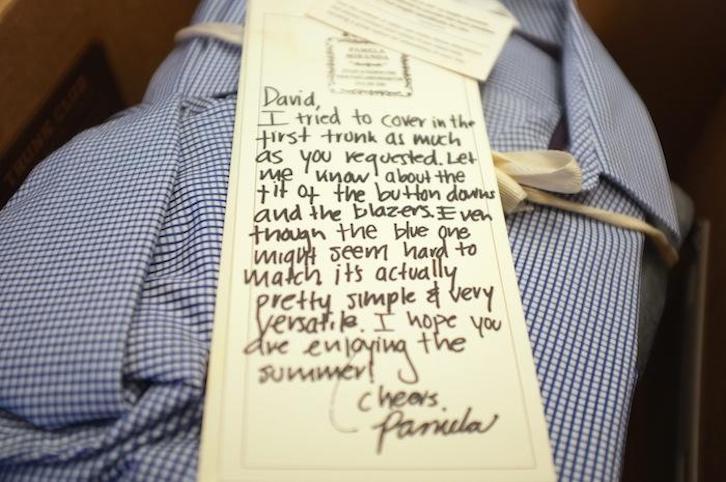 TRUNK CLUB
PAMELA
MIRANDA
David,
I tried to cover in the
first trunk as much
as you requested. Let
me know about the
fit of the button downs
and the blazers. Even
though the blue one
might seem hard to
match its actually
pretty simple & very
versatile. I hope you
are enjoying the
summer!
Cheers,
Pamela